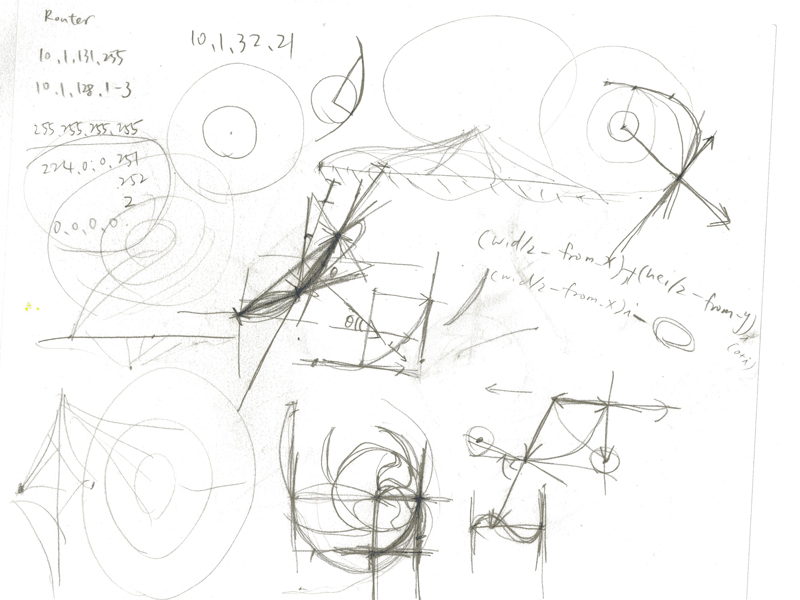 Router
10.1.131.255
10.1.128.1-3
255.255.255.255
224.0.0.251
252
2
0.0.0.0
10.1.32.21
(wid/2-from_x)+(hei/2-from_y)
(wid/2-from_x)i-
θ
θ